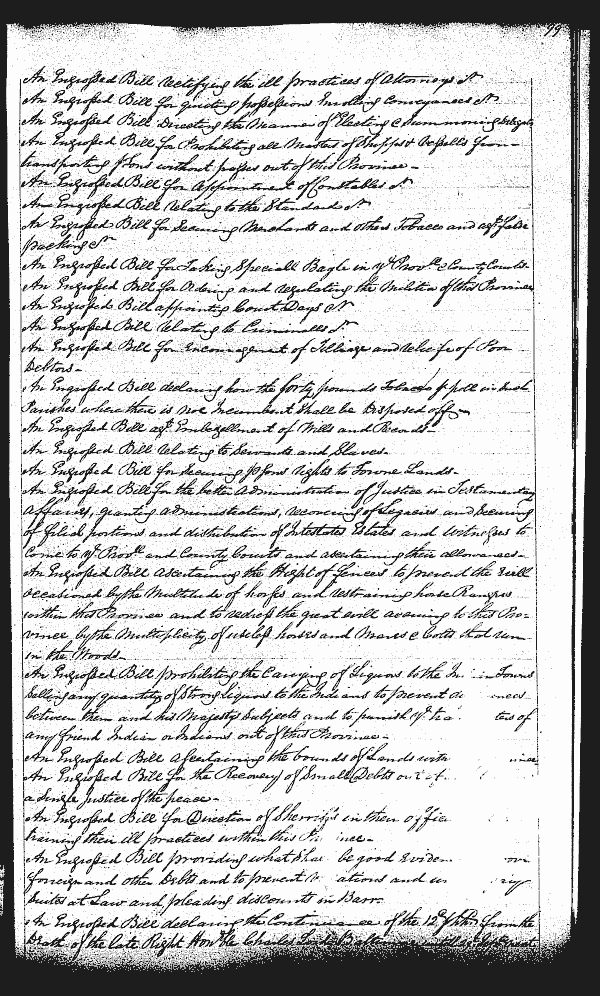 99
An Engrossed Bill rectifying the ill practices of Attorneys &c
An Engrossed Bill for quieting possessions Enrolling Conveyances &c
An Engrossed Bill Directing the Manner of Electing & Summoning Delegats
An Engrossed Bill for Prohibiting all Masters of Shipps & Vessells from
transporting p'sons without passes out of this Province
An Engrossed Bill for Appointment of Constables &c
An Engrossed Bill relating to the Standard &c
An Engrossed Bill for Securing Merchants and others Tobacco and agt false
packing &c
An Engrossed Bill for Taking Speciall Bayle in ye Provll & County Courts
An Engrossed Bill for Ordering and regulating the Militia of this Province
An Engrossed Bill appointing Court Days &c
An Engrossed Bill relating to Criminalls &c
An Engrossed Bill for Encouragement of Tillage and Releife of Poor
Debtors
An Engrossed Bill declaring how the forty pounds Tobacco p poll in such
Parishes where there is noe Incumbent shall be Disposed off
An Engrossed Bill agt Embezzellment of Wills and Records
An Engrossed Bill relating to Servants and Slaves
An Engrossed Bill for Securing p'sons rights to Towne Lands
An Engrossed Bill for the better Administration of Justice in Testamentary
Affaires, granting Administrations, recovering of Legacies and Secureing
of filial portions and distribution of Intestates Estates and Witnesses to
Come to ye Provll and County Courts and ascertaining their allowances
An Engrossed Bill ascertaining the Height of fences to prevent the Evill
occasioned by the Multitude of horses and restraining horse Rangers
within this Province and to redress the great evill accruing to this Pro-
vince by the Multiplicity of useless horses and Mares & Colts that run
in the Woods
An Engrossed Bill prohibiting the Carrying of Liquors to the In in Towns
Selling any quantity of Strong liquors to the Indians to prevent
between them and his Majestys Subjects and to punish ye of
any friend Indian or Indians out of this Province
An Engrossed Bill ascertaining the bounds of Lands with
An Engrossed Bill for the Recovery of Small Debts out of
a Single Justice of the peace
An Engrossed Bill for Direction of Sherriffs in their Office
training their ill practices within this
An Engrossed Bill providing what shall be good Eviden
foreign and other Debts and to prevent ations and
Suites at Law and pleading discounts in Barr
An Engrossed Bill declaring the Continuance of the 12d p from the
Death of the late Right Honble Charles Lord